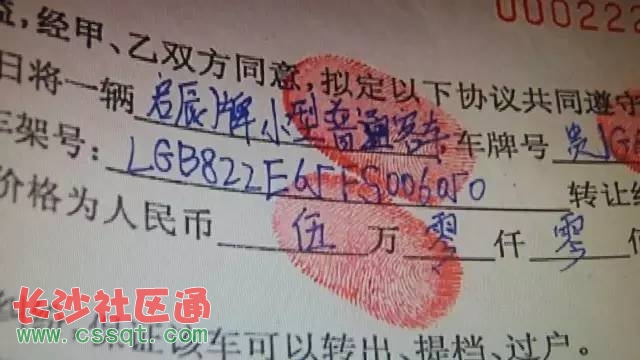 000222
益,经甲、乙双方同意,拟定以下协议共同遵守
日将一辆启辰牌小型普通客车 车牌号 贵JG
车架号: LGB822E65FS006050 转让给
价格为人民币 伍 万 零 仟 零
保证该车可以转出、提档、过户。
长沙社区通
www.cssqt.com